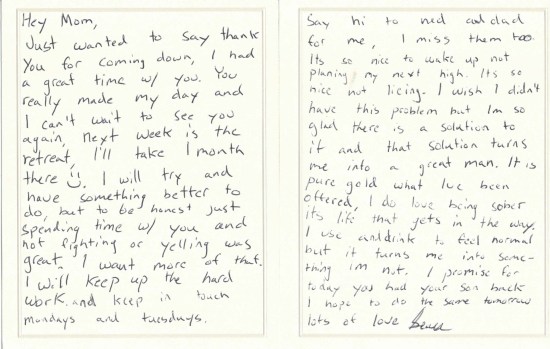 Hey Mom,
Just wanted to say thank
You for coming down, I had
a great time w/ you. You
really made my day and
I can't wait to see you
again, next week is the
retreat, I'll take 1 month
there I will try and
have something better to
do, but to be honest just
spending time w/ you and
not fighting or yelling was
great. I want more of that.
I will keep up the hard
work. and keep in touch
mondays and tuesdays.
Say hi to ned and dad
for me, I miss them too.
Its so nice to wake up not
planing my next high. Its so
nice not lieing. I wish I didn't
have this problem but Im so
glad there is a solution to
it and that solution turns
me into a great man. It is
pure gold what Ive been
offered, I do love being sober
its life that gets in the way.
I use and drink to feel normal
but it turns me into some-
thing im not. I promise for
today you had your son back
I hope to do the same tomorrow
lots of love